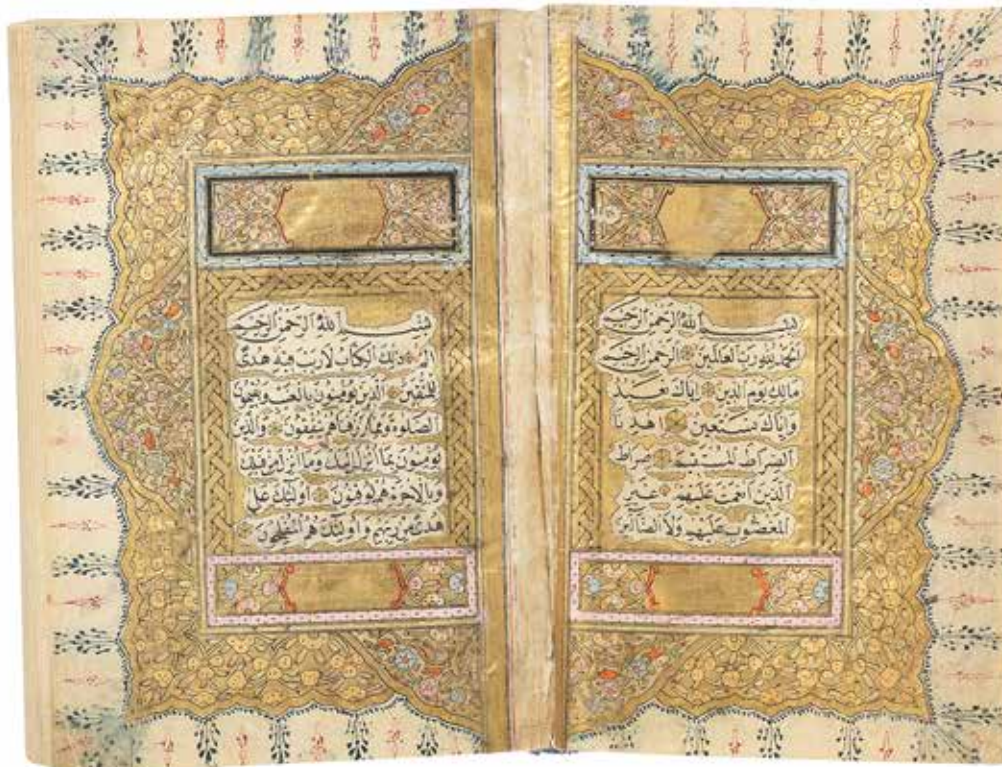 بسم الله الرحمن الرحيم
الحمد لله رب العالمين الرحمن الرحيم
مالك يوم الدين اياك نعبد
واياك نستعين اهدنا
الصراط المستقيم صراط
الذين انعمت عليهم غير
المغضوب عليهم ولا الضالين
بسم الله الرحمن الرحيم
الم ذلك الكتاب لا ريب فيه هدى
للمتقين الذين يؤمنون بالغيب ويقيمون
الصلوة ومما رزقناهم ينفقون والذين
يؤمنون بما انزل اليك وما انزل من قبلك
وبالاخرة هم يوقنون اولئك على
هدى من ربهم واولئك هم المفلحون